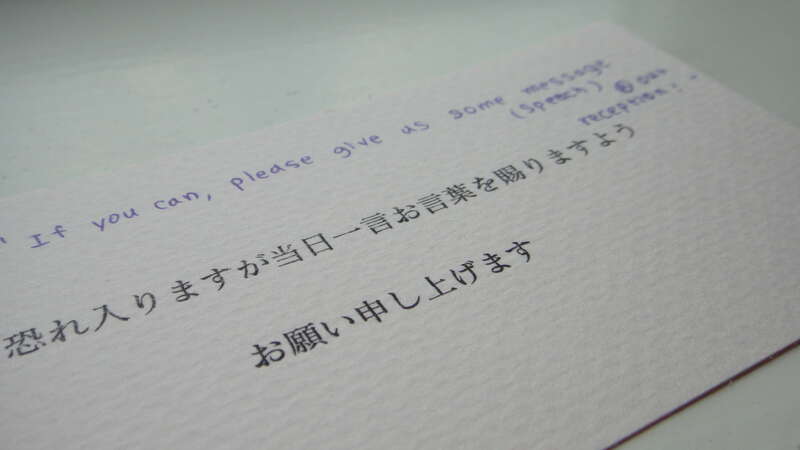 " If you can, please give us some message
(speech) @ our
reception;-
恐れ入りますが当日一言お言葉を賜りますよう
お願い申し上げます